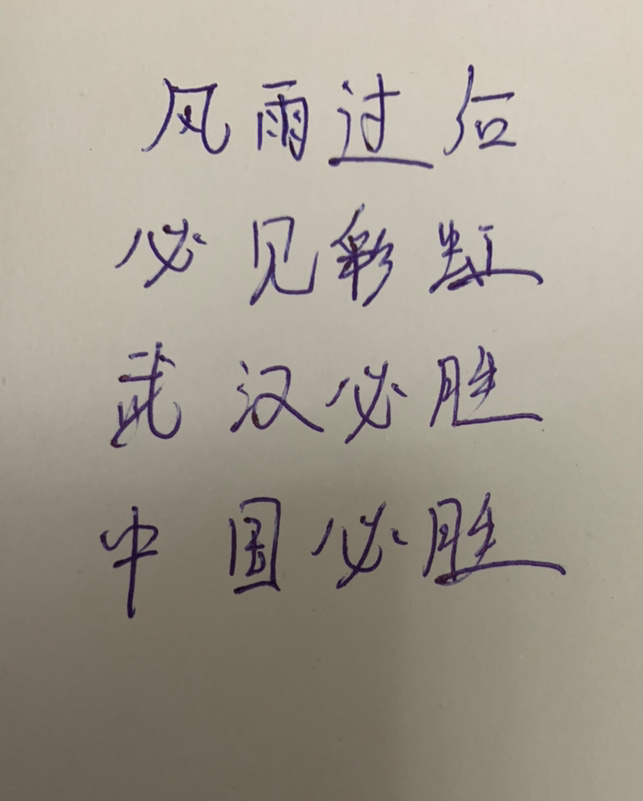 风雨过后
必见彩虹
武汉必胜
中国必胜